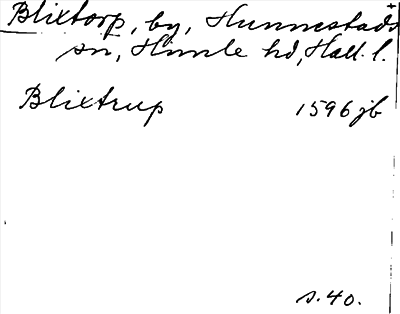 Blixtorp, by, Hunnestads
sn, Himle hd, Hall. l.
Blixtrup 1596 jb
s. 40.